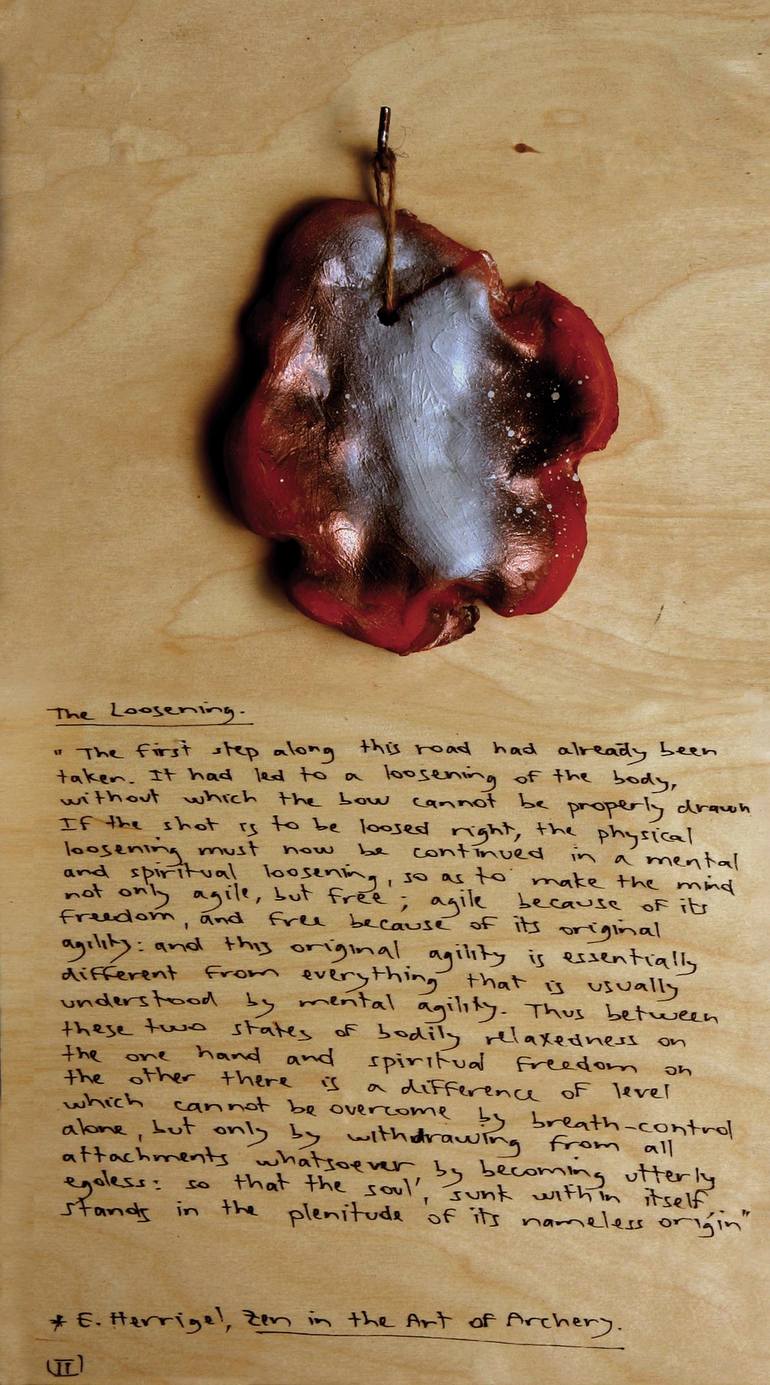 The Loosening.
" The first step along this road had already been
taken. It had led to a loosening of the body,
without which the bow cannot be properly drawn
If the shot is to be loosed right, the physical
loosening must now be continued in a mental
and spiritual loosening, so as to make the mind
not only agile, but free; agile because of its
freedom, and free because of its original
agility: and this original agility is essentially
different from everything that is usually
understood by mental agility. Thus between
these two states of bodily relaxedness on
the one hand and spiritual freedom on
the other there is a difference of level
which cannot be overcome by breath-control
alone, but only by withdrawing from all
attachments whatsoever by becoming utterly
egoless: so that the soul', sunk within itself
stands in the plenitude of its nameless origin"
* E. Herrigel, Zen in the Art of Archery.
(II)